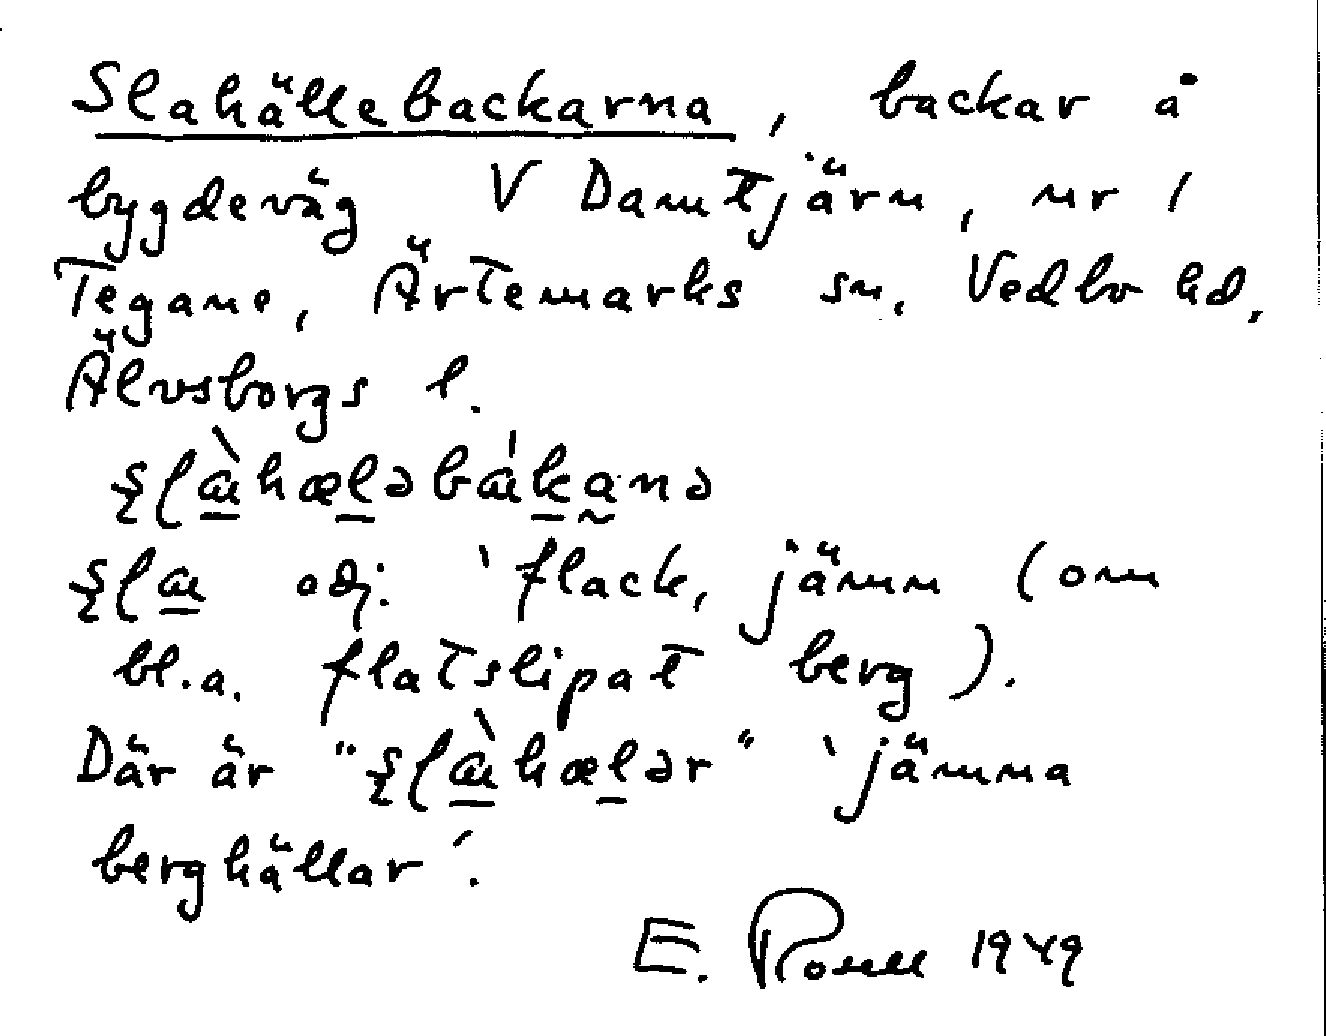 Slahällebackarna, backar å
bygdeväg V Damtjärn, nr 1
Tegane, Ärtemarks sn, Vedbo hd,
Älvsborgs l.
adj. 'flack, jämn (om
bl.a. flatslipat berg).
Där är " " 'jämna
berghällar'.
E. 1949